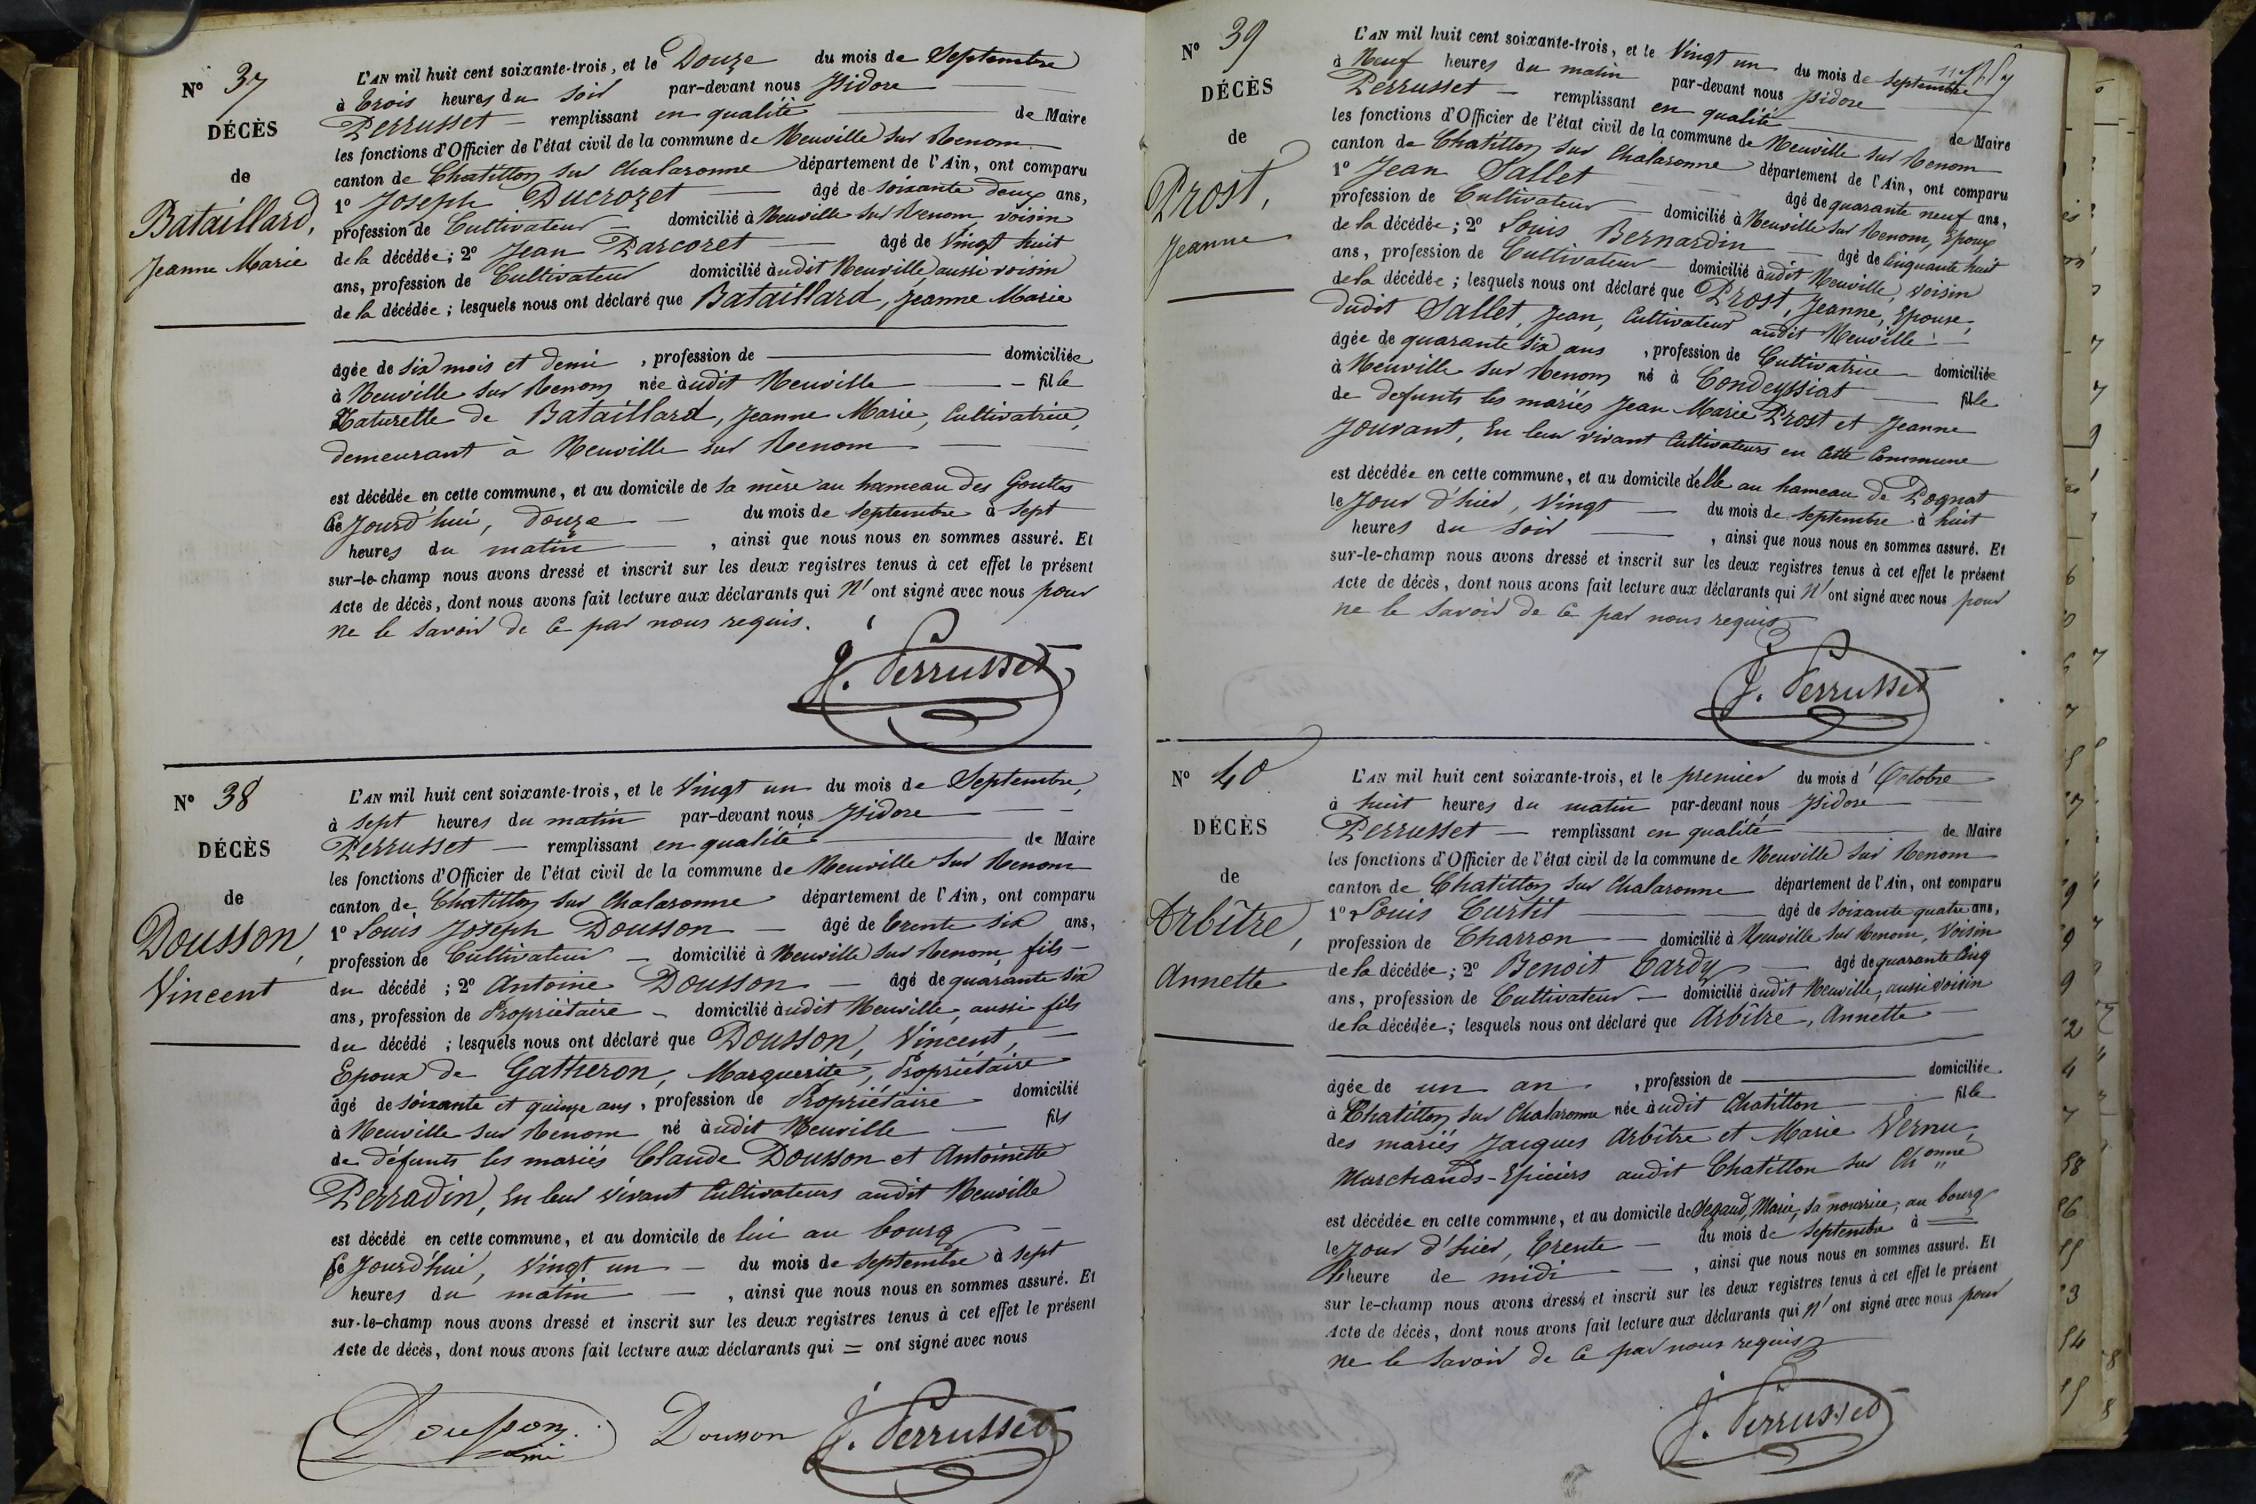 N° 37
DÉCÈS
de
Bataillard,
Jeanne Marie
L'AN mil huit cent soixante-trois, et le Douze du mois de Septembre
à trois heures du soir par-devant nous Isidore
Perrusset remplissant en qualité de Maire
les fonctions d'Officier de l'état civil de la commune de Neuville sur Renom
canton de Chatillon sur Chalaronne département de l'Ain, ont comparu
1° Joseph Ducrozet âgé de soixante deux ans,
profession de Cultivateur domicilié à Neuville sur Renom voisin
de la décédée; 2° Jean Parcoret âgé de Vingt huit
ans, profession de Cultivateur domicilié audit Neuville aussi voisin
de la décédée; lesquels nous ont déclaré que Bataillard, Jeanne Marie
âgée de six mois et demi, profession de domiciliée
à Neuville sur Renom née audit Neuville fille
Naturelle de Bataillard, Jeanne Marie, Cultivatrice,
demeurant à Neuville sur Renom
est décédée en cette commune, et au domicile de sa mère au hameau des Gouttes
ce Jourd'hui, douze du mois de septembre à sept
heures du matin, ainsi que nous nous en sommes assuré. Et
sur-le-champ nous avons dressé et inscrit sur les deux registres tenus à cet effet le présent
Acte de décès, dont nous avons fait lecture aux déclarants qui n'ont signé avec nous pour
ne le savoir de ce par nous requis.
J. Perrusset
N° 38
DÉCÈS
de
Dousson,
Vincent
L'AN mil huit cent soixante-trois, et le Vingt un du mois de Septembre,
à sept heures du matin par-devant nous Isidore
Perrusset remplissant en qualité de Maire
les fonctions d'Officier de l'état civil de la commune de Neuville sur Renom
canton de Chatillon sur Chalaronne département de l'Ain, ont comparu
1° Louis Joseph Dousson âgé de trente six ans,
profession de Cultivateur domicilié à Neuville sur Renom, fils
du décédé; 2° Antoine Dousson âgé de quarante six
ans, profession de Propriétaire domicilié audit Neuville, aussi fils
du décédé; lesquels nous ont déclaré que Dousson, Vincent,
Epoux de Gatheron, Marguerite, Propriétaire
âgé de soixante et quinze ans, profession de Propriétaire domicilié
à Neuville sur Renom né audit Neuville fils
de défunts les mariés Claude Dousson et Antoinette
Perradin, en leur vivant Cultivateurs audit Neuville
est décédé en cette commune, et au domicile de lui au bourg
ce Jourd'hui, Vingt un du mois de septembre à sept
heures du matin, ainsi que nous nous en sommes assuré. Et
sur-le-champ nous avons dressé et inscrit sur les deux registres tenus à cet effet le présent
Acte de décès, dont nous avons fait lecture aux déclarants qui = ont signé avec nous
Dousson Dousson J. Perrusset
N° 39
DÉCÈS
de
Prost,
Jeanne
L'AN mil huit cent soixante-trois, et le Vingt un du mois de septembre
à Neuf heures du matin par-devant nous Isidore
Perrusset remplissant en qualité de Maire
les fonctions d'Officier de l'état civil de la commune de Neuville sur Renom
canton de Chatillon sur Chalaronne département de l'Ain, ont comparu
1° Jean Sallet âgé de quarante neuf ans,
profession de Cultivateur domicilié à Neuville sur Renom, Epoux
de la décédée; 2° Louis Bernardin âgé de Cinquante huit
ans, profession de Cultivateur domicilié audit Neuville, voisin
de la décédée; lesquels nous ont déclaré que Prost, Jeanne, Epouse,
dudit Sallet, Jean, Cultivateur audit Neuville
âgée de quarante six ans, profession de Cultivatrice domiciliée
à Neuville sur Renom né à Condeyssiat fille
de defunts les mariés Jean Marie Prost et Jeanne
Jouvant, En leur vivant Cultivateurs en Cette Commune
est décédée en cette commune, et au domicile d'elle au hameau de Pognat
le Jour d'hier, Vingt du mois de septembre à huit
heures du soir, ainsi que nous nous en sommes assuré. Et
sur-le-champ nous avons dressé et inscrit sur les deux registres tenus à cet effet le présent
Acte de décès, dont nous avons fait lecture aux déclarants qui n'ont signé avec nous pour
ne le savoir de ce par nous requis
J. Perrusset
N° 40
DÉCÈS
de
Arbître,
Annette
L'AN mil huit cent soixante-trois, et le premier du mois d'Octobre
à huit heures du matin par-devant nous Isidore
Perrusset remplissant en qualité de Maire
les fonctions d'Officier de l'état civil de la commune de Neuville sur Renom
canton de Chatillon sur Chalaronne département de l'Ain, ont comparu
1° Louis Curtil âgé de soixante quatre ans,
profession de Charron domicilié à Neuville sur Renom, Voisin
de la décédée; 2° Benoit Tardy âgé de quarante Cinq
ans, profession de Cultivateur domicilié audit Neuville, aussi voisin
de la décédée; lesquels nous ont déclaré que Arbître, Annette
âgée de un an, profession de domiciliée
à Chatillon sur Chalaronne née audit Chatillon fille
des mariés Jacques Arbître et Marie Vernu,
Marchands-Epiciers audit Chatillon sur Chonne
est décédée en cette commune, et au domicile de Segaud, Marie, sa nourrice, au bourg
le Jour d'hier, trente du mois de septembre à
l'heure de midi, ainsi que nous nous en sommes assuré. Et
sur le-champ nous avons dressé et inscrit sur les deux registres tenus à cet effet le présent
Acte de décès, dont nous avons fait lecture aux déclarants qui n'ont signé avec nous pour
ne le savoir de ce par nous requis
J. Perrusset